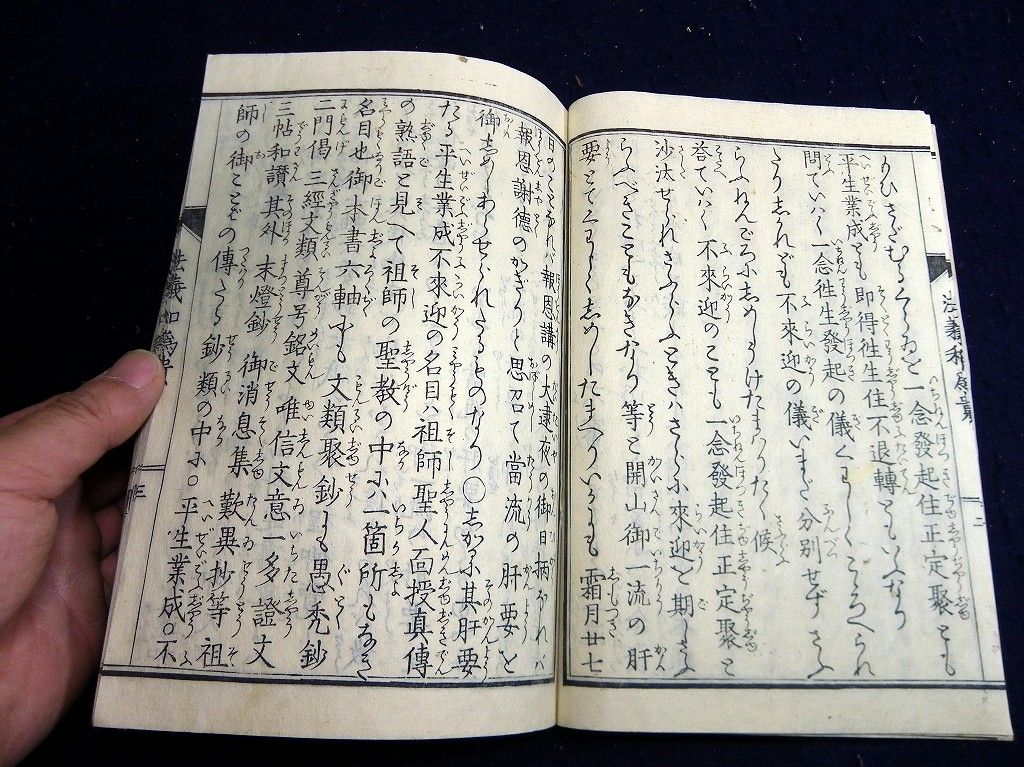 りひさだむるくらゐを一念發起住正定聚とも
平生業成とも即得徃生住不退轉ともいふなり
問ていはく一念徃生發起の儀くはしくこゝろへられ
たりしかれども不來迎の儀いまだ分別せずさふ
らふねんごろにしめしうけたまはりたく候
荅ていはく不來迎のことも一念發起住正定聚と
沙汰せられさふらふときはさらに來迎を期しさふ
らふべきこともなきなり等と開山御一流の肝
要とてくはしくしめしたまへりいかにも霜月廿七
日のことなれバ報恩講の大逮夜の御日柄なれバ
報恩謝德のかぎりと思召て當流の肝要を
御しめしあらせられたるものなり○しかるに其肝要
たる平生業成不來迎の名目ハ祖師聖人面授真傳
の熟語と見へて祖師の聖教の中にハ一箇所もなき
名目也御本書六軸にも文類聚鈔にも愚禿鈔
二門偈三經文類尊号銘文唯信文意一多證文
三帖和讃其外末燈鈔御消息集歎異抄等祖
師の御ことばの傳たる鈔類の中に○平生業成○不
三
二